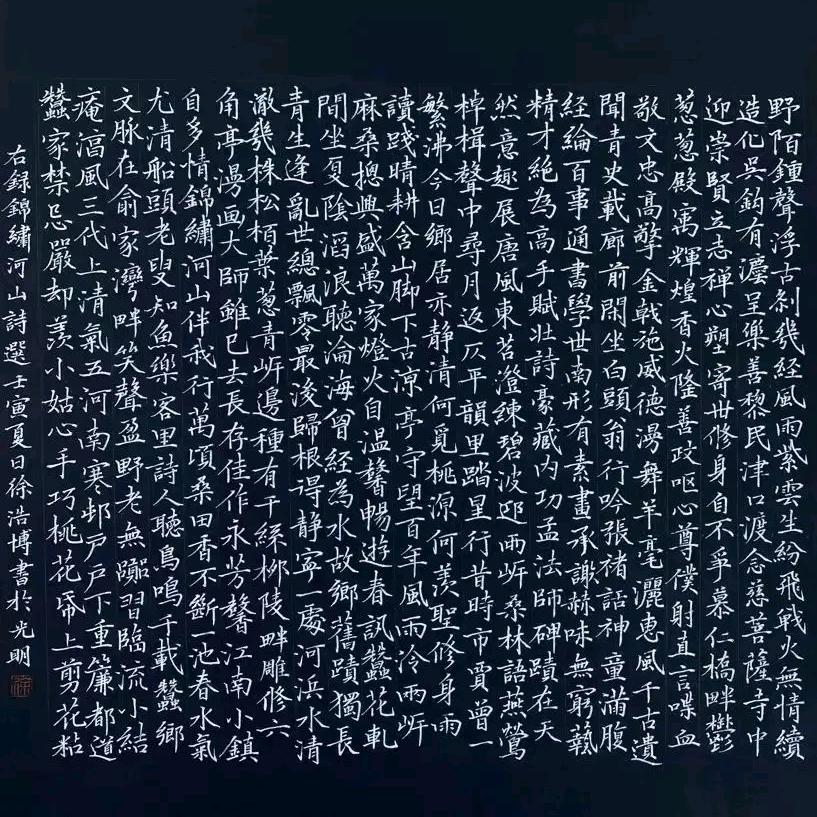 野陌鍾聲浮古刹幾經風雨紫雲生紛飛戰火無情續
造化吳鈎有瀍呈樂善黎民津口渡念慈菩薩寺中
迎崇賢立志禪心塑寄世修身自不爭慕仁橋畔鬱
葱葱殿寓輝煌香火隆善政嘔心尊僕射直言喋血
敬文忠高擎金戟施威德漫舞羊毫灑惠風千古遺
聞青史載廊前閑坐白頭翁行吟張褚話神童滿腹
経綸百事通書學世南形有素畫承謝赫味無窮藝
精才絕為高手賦壯詩豪藏内功孟法師碑蹟在天
然意趣展唐風東苕澄練碧波迎兩岍桑林語燕鶯
棹楫聲中尋月返仄平韻里踏星行昔時市賈曾一
繁沸今日鄉居亦静清何覓桃源何羨聖修身雨
讀踐晴耕含山脚下古涼亭守望百年風雨泠兩岍
麻桑摠興盛萬家燈火自温馨暢遊春訊蠶花軋
間坐夏陰滔浪聽淪海曾経為水故鄉舊蹟獨長
青生逢亂世總飄零最後歸根得静寧一處河浜水清
澈幾株松栢葉葱青岍邊種有千絲栁陵畔雕修六
角亭漫画大師雖已去長存佳作永芳馨江南小鎮
自多情錦繡河山伴我行萬頃桑田香不斷一池春水氣
尤清船頭老叟知魚樂客里詩人聽鳥鳴千載蠶鄉
文脉在俞家灣畔笑聲盈野老無躑習臨流小結
庵滆風三代上清氣五河南寒邨戸戸下重簾都道
蠶家禁忌嚴却羨小姑心手巧桃花帋上剪花粘
右録錦繡河山詩選壬寅夏日徐浩博書於光明